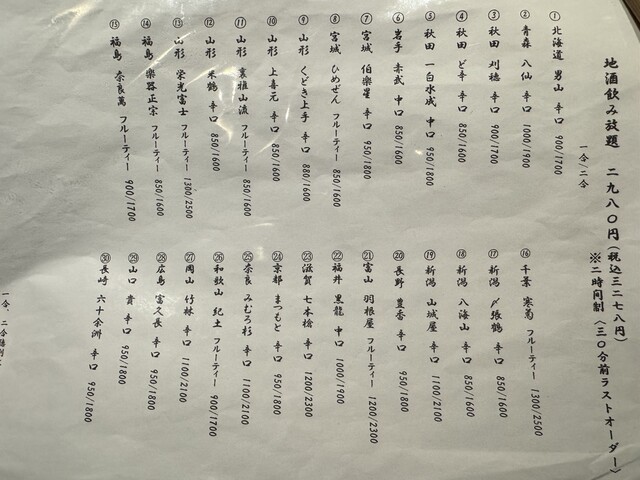 地酒飲み放題 二九八〇円(税込三二七八円)
※二時間制(三〇分前ラストオーダー)
一合/二合
① 北海道 男山 辛口 900/1700
② 青森 八仙 辛口 1000/1900
③ 秋田 刈穂 辛口 900/1700
④ 秋田 ど辛 辛口 850/1600
⑤ 秋田 一白水成 中口 950/1800
⑥ 岩手 赤武 中口 850/1600
⑦ 宮城 伯楽星 辛口 950/1800
⑧ 宮城 ひめぜん フルーティー 850/1600
⑨ 山形 くどき上手 辛口 880/1600
⑩ 山形 上喜元 辛口 850/1600
⑪ 山形 裏雅山流 フルーティー 850/1600
⑫ 山形 米鶴 辛口 850/1600
⑬ 山形 栄光冨士 フルーティー 1300/2500
⑭ 福島 楽器正宗 フルーティー 850/1600
⑮ 福島 奈良萬 フルーティー 900/1700
⑯ 千葉 寒菊 フルーティー 1300/2500
⑰ 新潟 〆張鶴 辛口 850/1600
⑱ 新潟 八海山 辛口 850/1600
⑲ 新潟 山城屋 辛口 1100/2100
⑳ 長野 豊香 辛口 950/1800
㉑ 富山 羽根屋 フルーティー 1200/2300
㉒ 福井 黒龍 中口 1000/1900
㉓ 滋賀 七本槍 辛口 1200/2300
㉔ 京都 まつもと 辛口 950/1800
㉕ 奈良 みむろ杉 辛口 1100/2100
㉖ 和歌山 紀土 フルーティー 900/1700
㉗ 岡山 竹林 辛口 1100/2100
㉘ 広島 富久長 辛口 950/1800
㉙ 山口 貴 辛口 950/1800
㉚ 長崎 六十余洲 辛口 950/1800
一合、二合